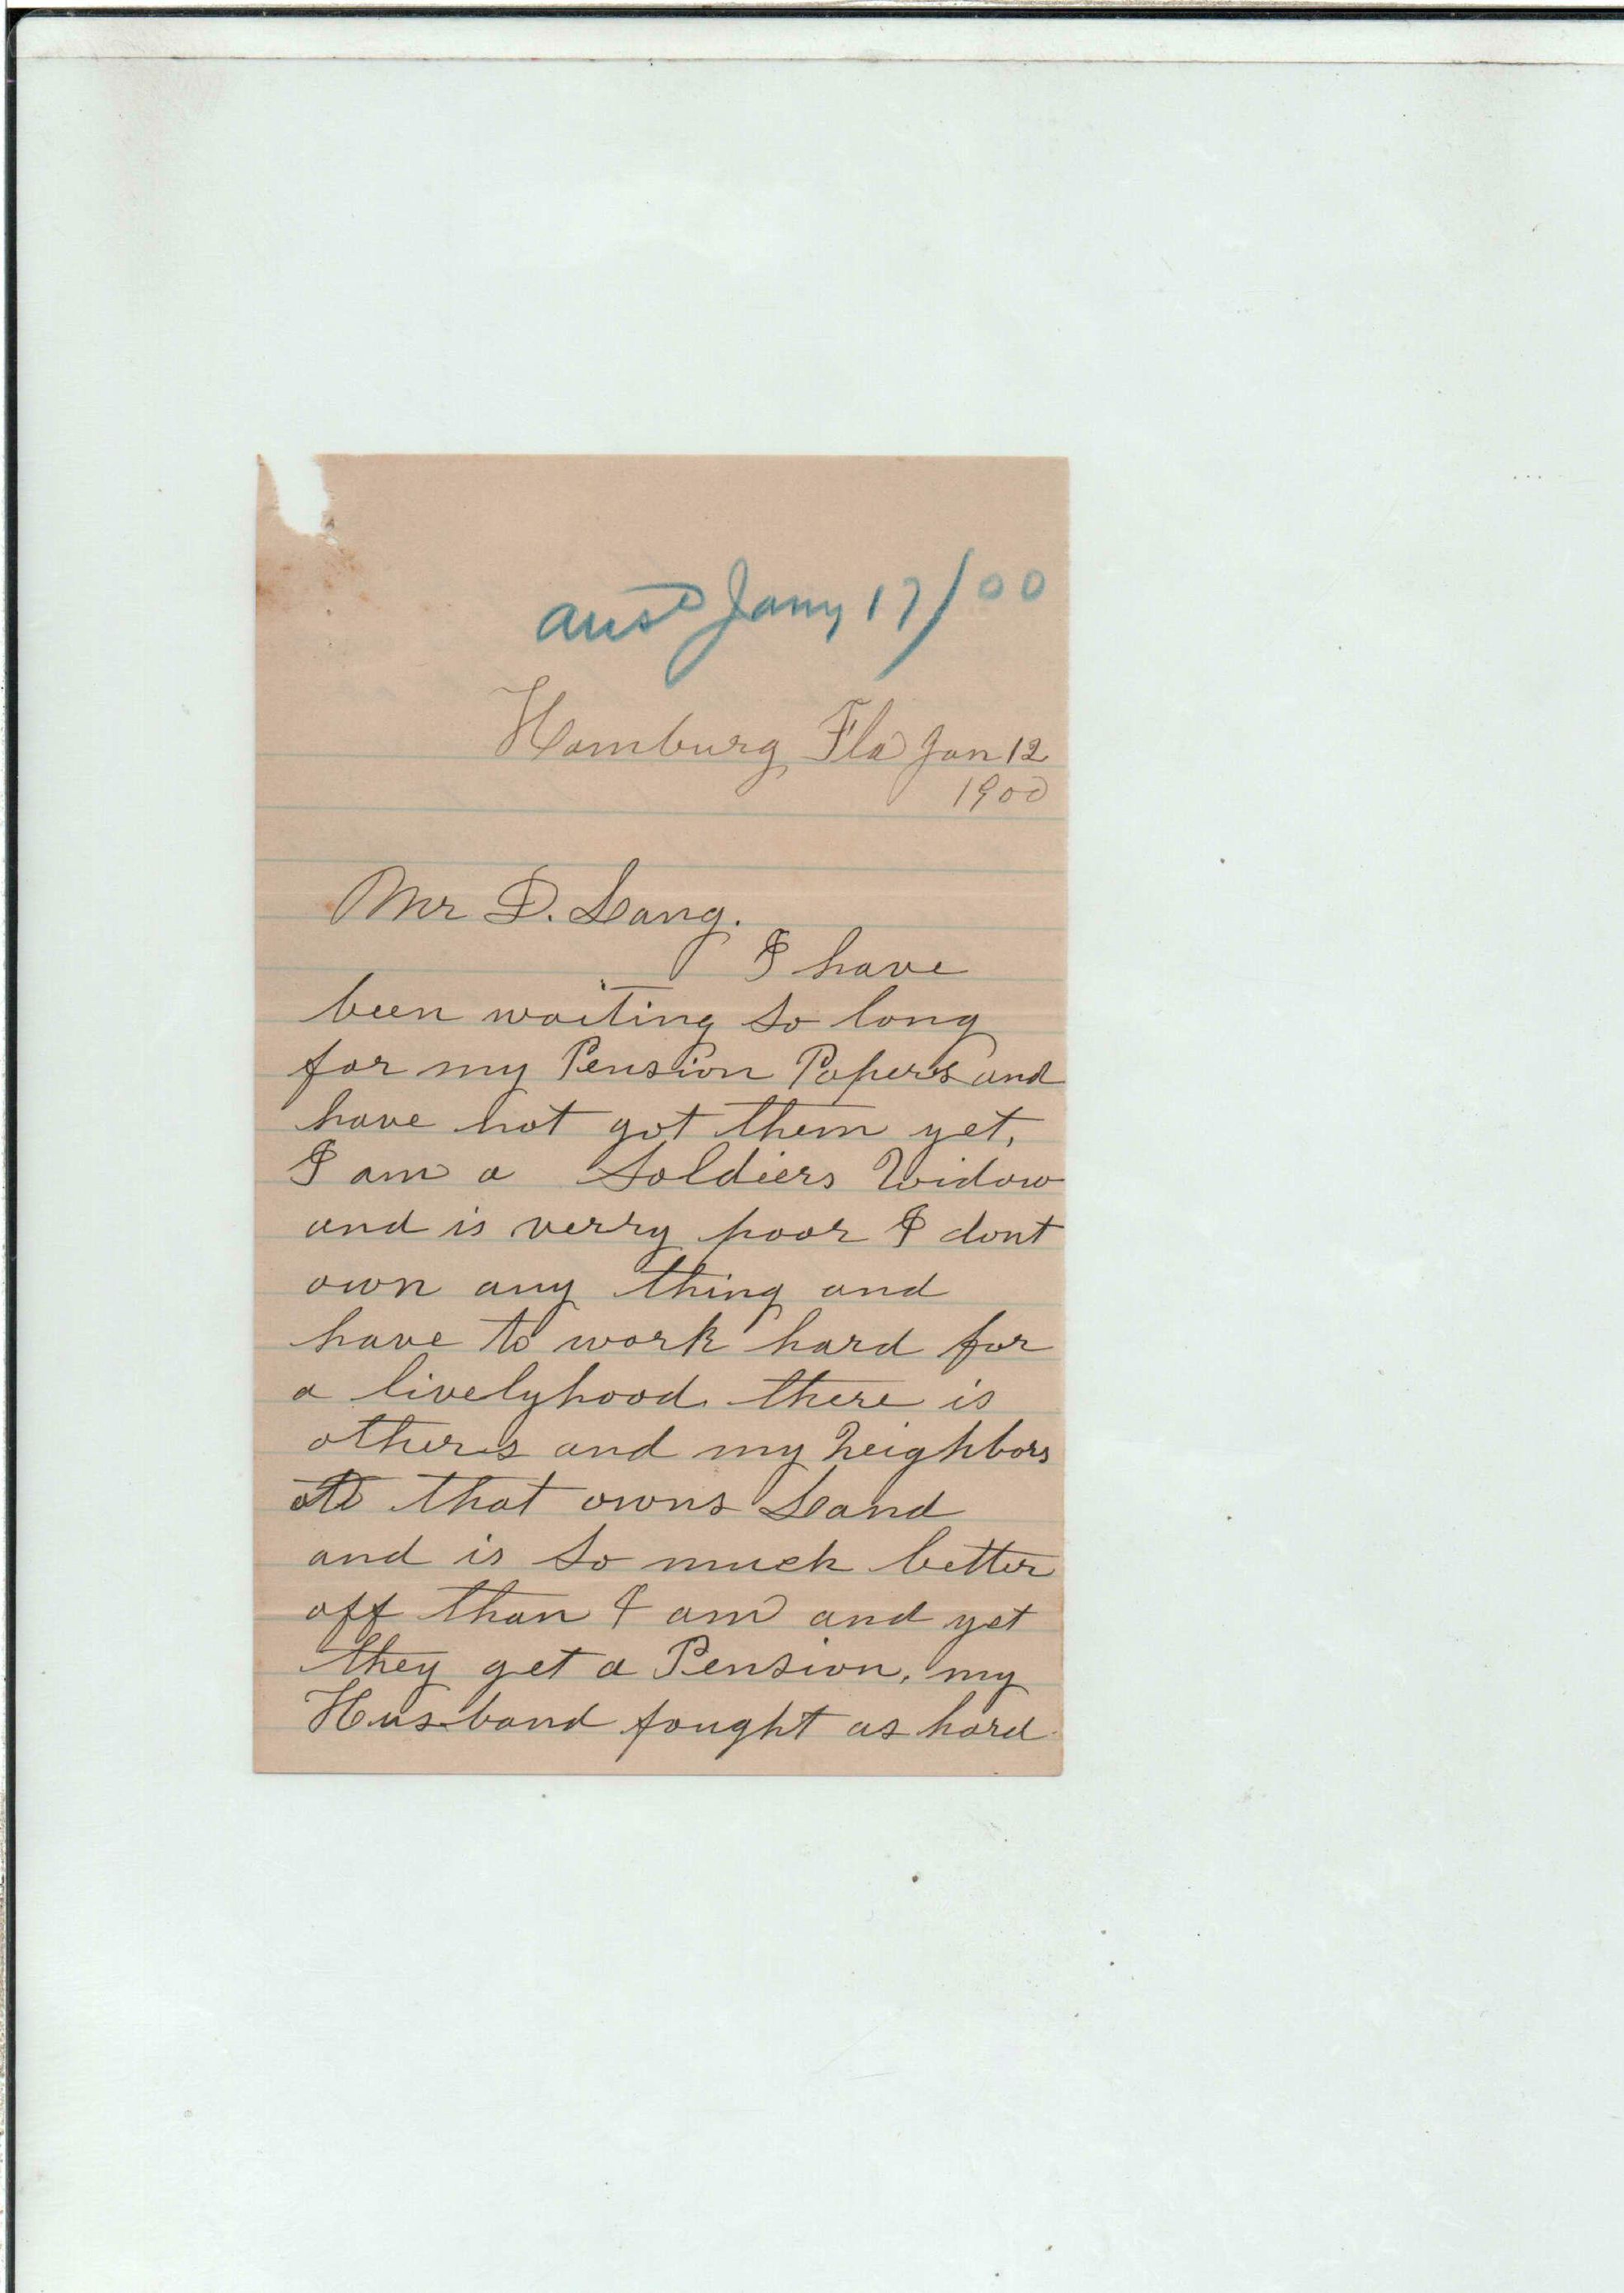 ansd Jany 17/00
Hamburg Fla Jan 12
1900
Mr D. Lang.
I have
been waiting so long
for my Pension Papers and
have not got them yet,
I am a Soldiers Widow
and is verry poor I dont
own any thing and
have to work hard for
a livelyhood. there is
others and my Neighbors
that owns Land
and is so much better
off than I am and yet
they get a Pension, my
Husband fought as hard